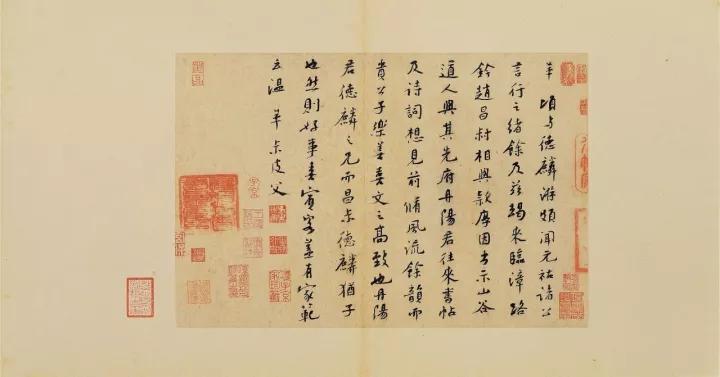 頃与德麟游頗聞元祐諸公
言行之緒餘及茲朅來臨漳路
鈐趙昌相與款厚因出示山谷
道人與其先府丹陽君往來書帖
及詩詞想見前脩風流餘韻而
貴公子樂善喜文之高致也丹陽
君德麟之兄而昌德麟猶子
也然則好事喜賓客蓋有家範
溫父